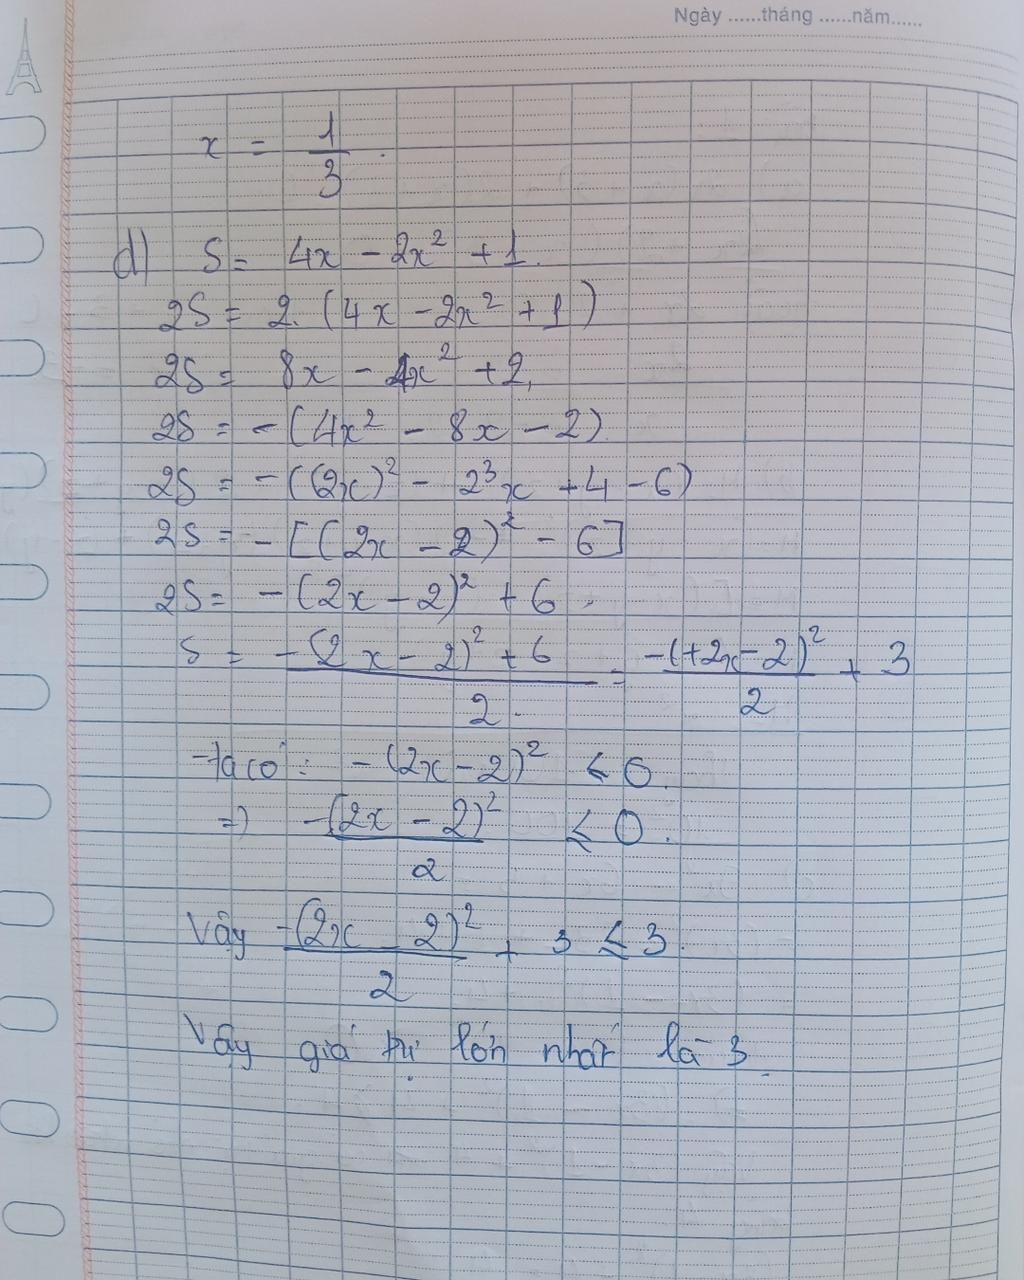 Ngày ......tháng ......năm......
x = 1/3.
d) S = 4x - 2x² + 1.
2S = 2. (4x - 2x² + 1)
2S = 8x - 4x² + 2,
2S = -(4x² - 8x - 2).
2S = -((2x)² - 2³x + 4 - 6)
2S = -[(2x - 2)² - 6]
2S = -(2x - 2)² + 6,
S = (-(2x - 2)² + 6)/2. = (-(+2x - 2)²)/2 + 3
-ta có: -(2x - 2)² ≤ 0.
=> (-(2x - 2)²)/2 ≤ 0.
Vậy (-(2x - 2)²)/2 + 3 ≤ 3.
Vậy giá trị lớn nhất là 3.